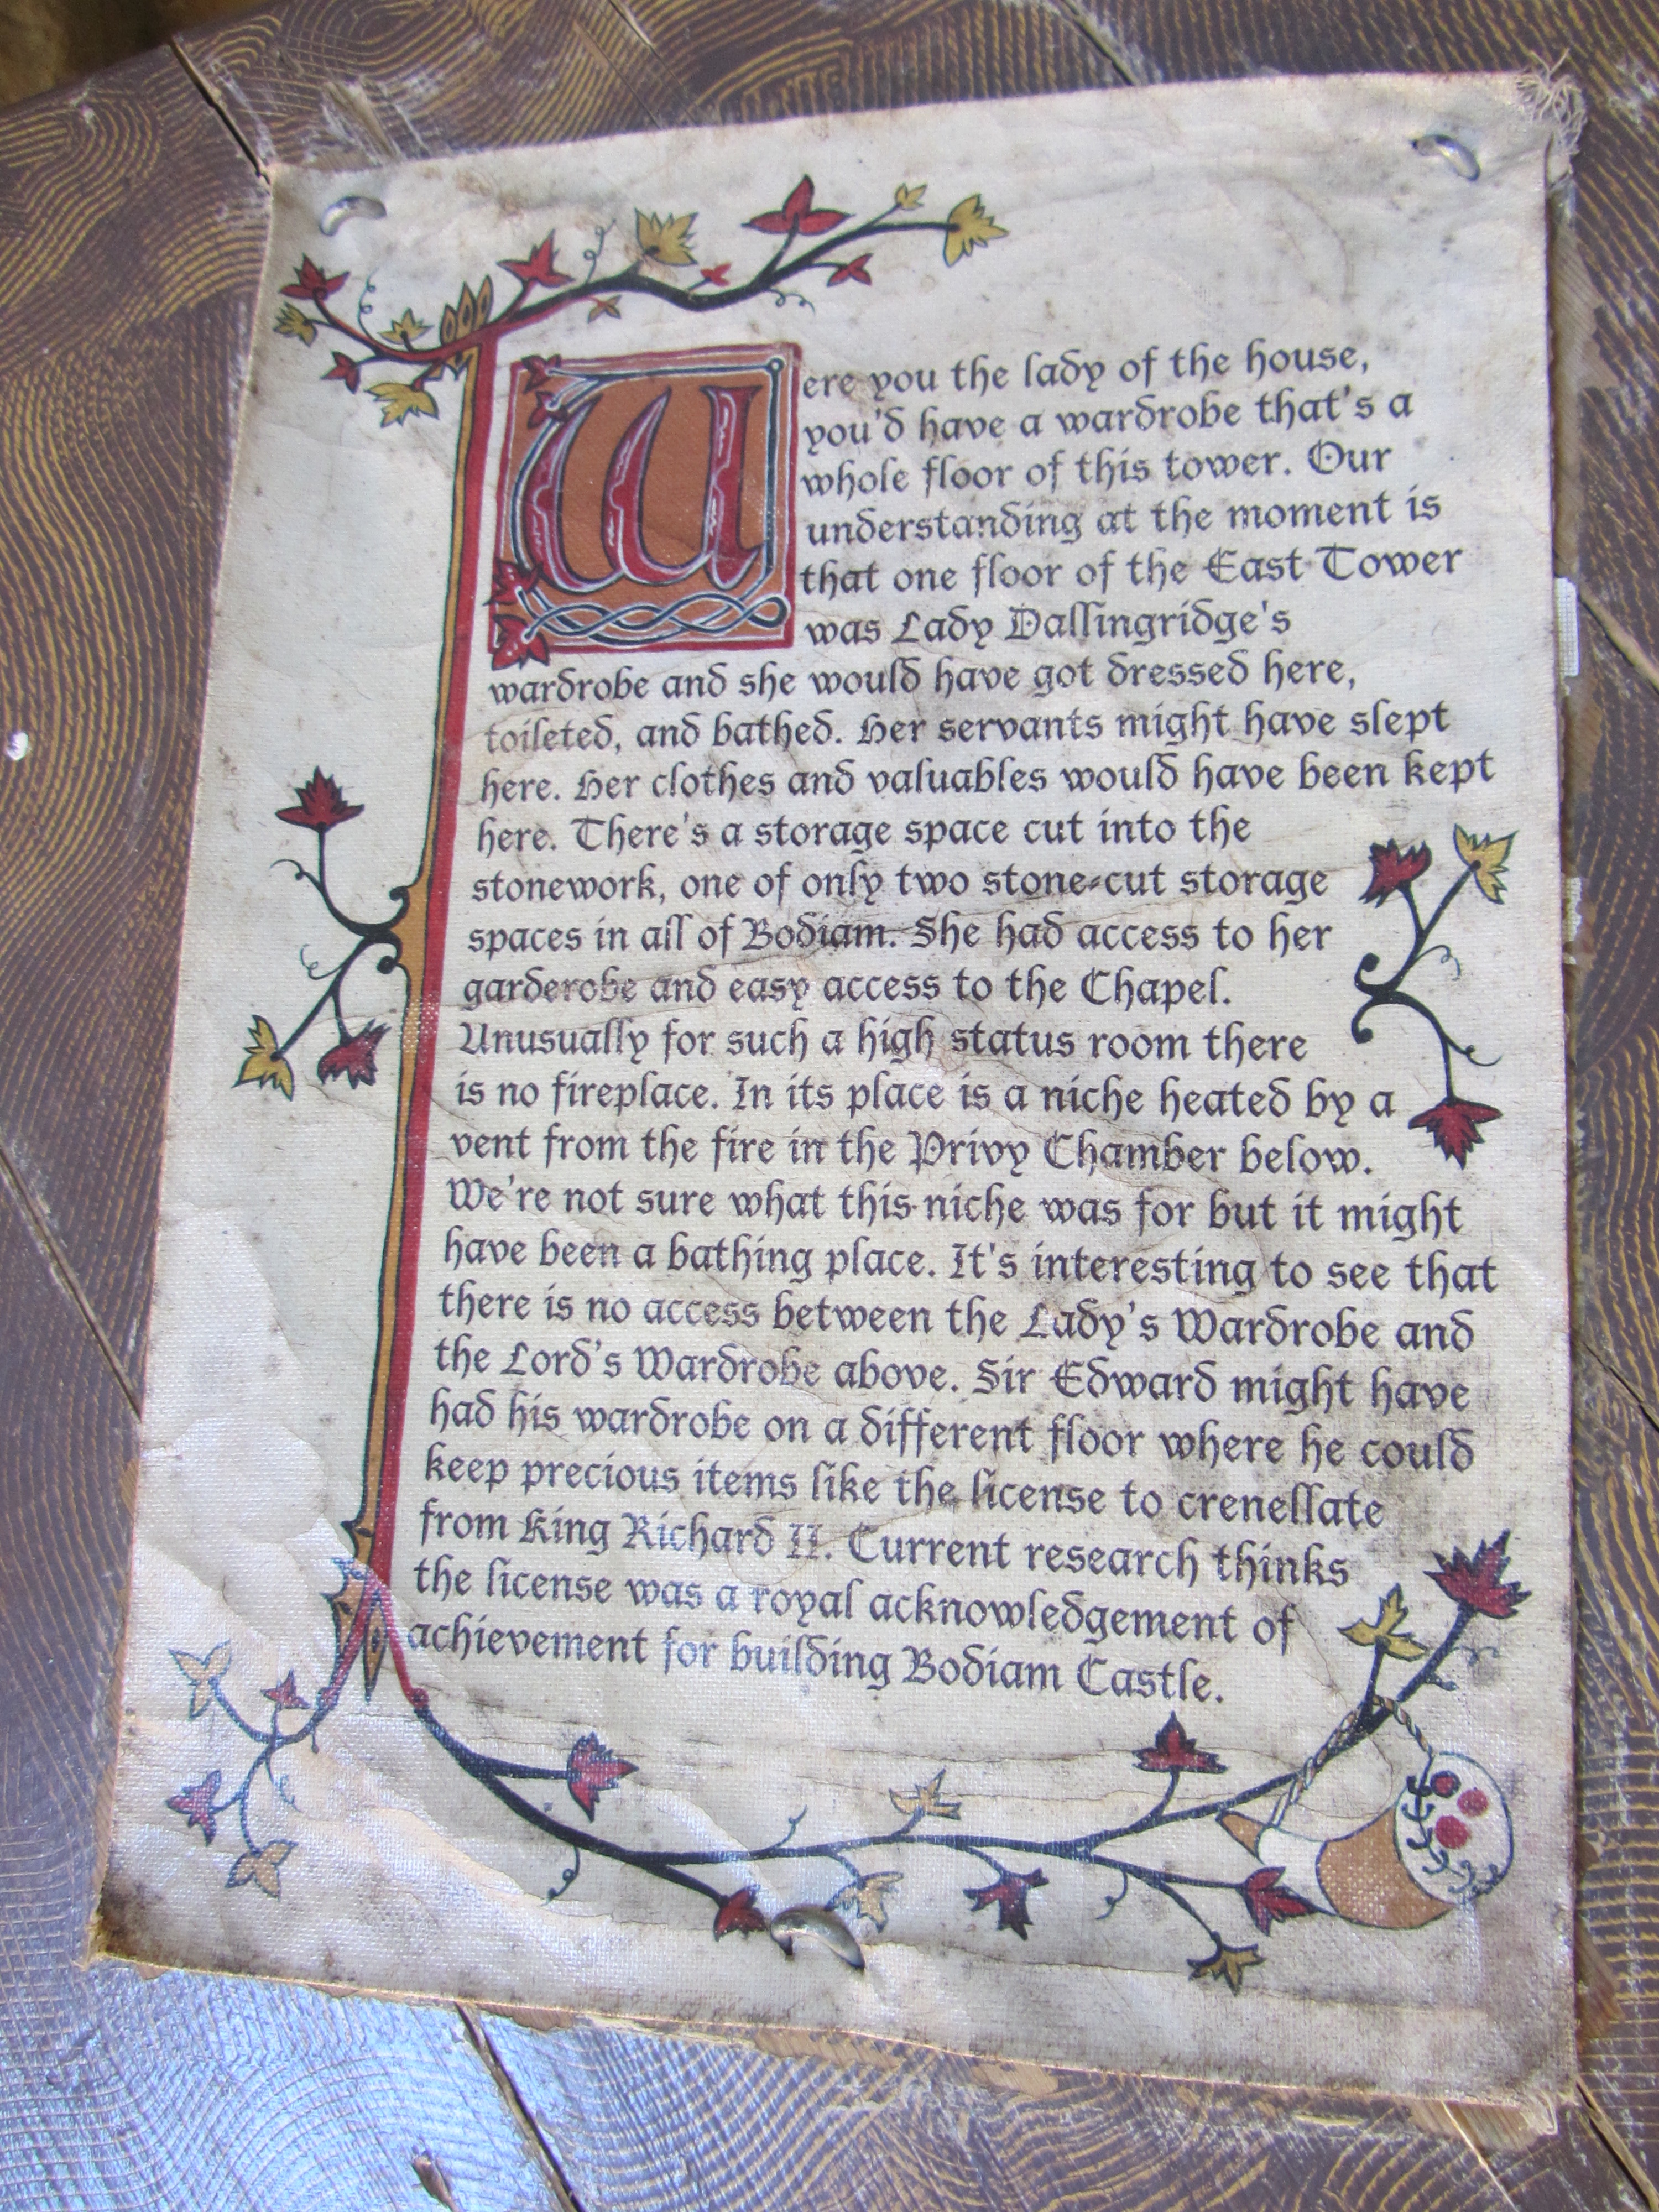 Were you the lady of the house,
you'd have a wardrobe that's a
whole floor of this tower. Our
understanding at the moment is
that one floor of the East Tower
was Lady Dallingridge's
wardrobe and she would have got dressed here,
toileted, and bathed. Her servants might have slept
here. Her clothes and valuables would have been kept
here. There's a storage space cut into the
stonework, one of only two stone-cut storage
spaces in all of Bodiam. She had access to her
garderobe and easy access to the Chapel.
Unusually for such a high status room there
is no fireplace. In its place is a niche heated by a
vent from the fire in the Privy Chamber below.
We're not sure what this niche was for but it might
have been a bathing place. It's interesting to see that
there is no access between the Lady's Wardrobe and
the Lord's Wardrobe above. Sir Edward might have
had his wardrobe on a different floor where he could
keep precious items like the license to crenellate
from King Richard II. Current research thinks
the license was a royal acknowledgement of
achievement for building Bodiam Castle.